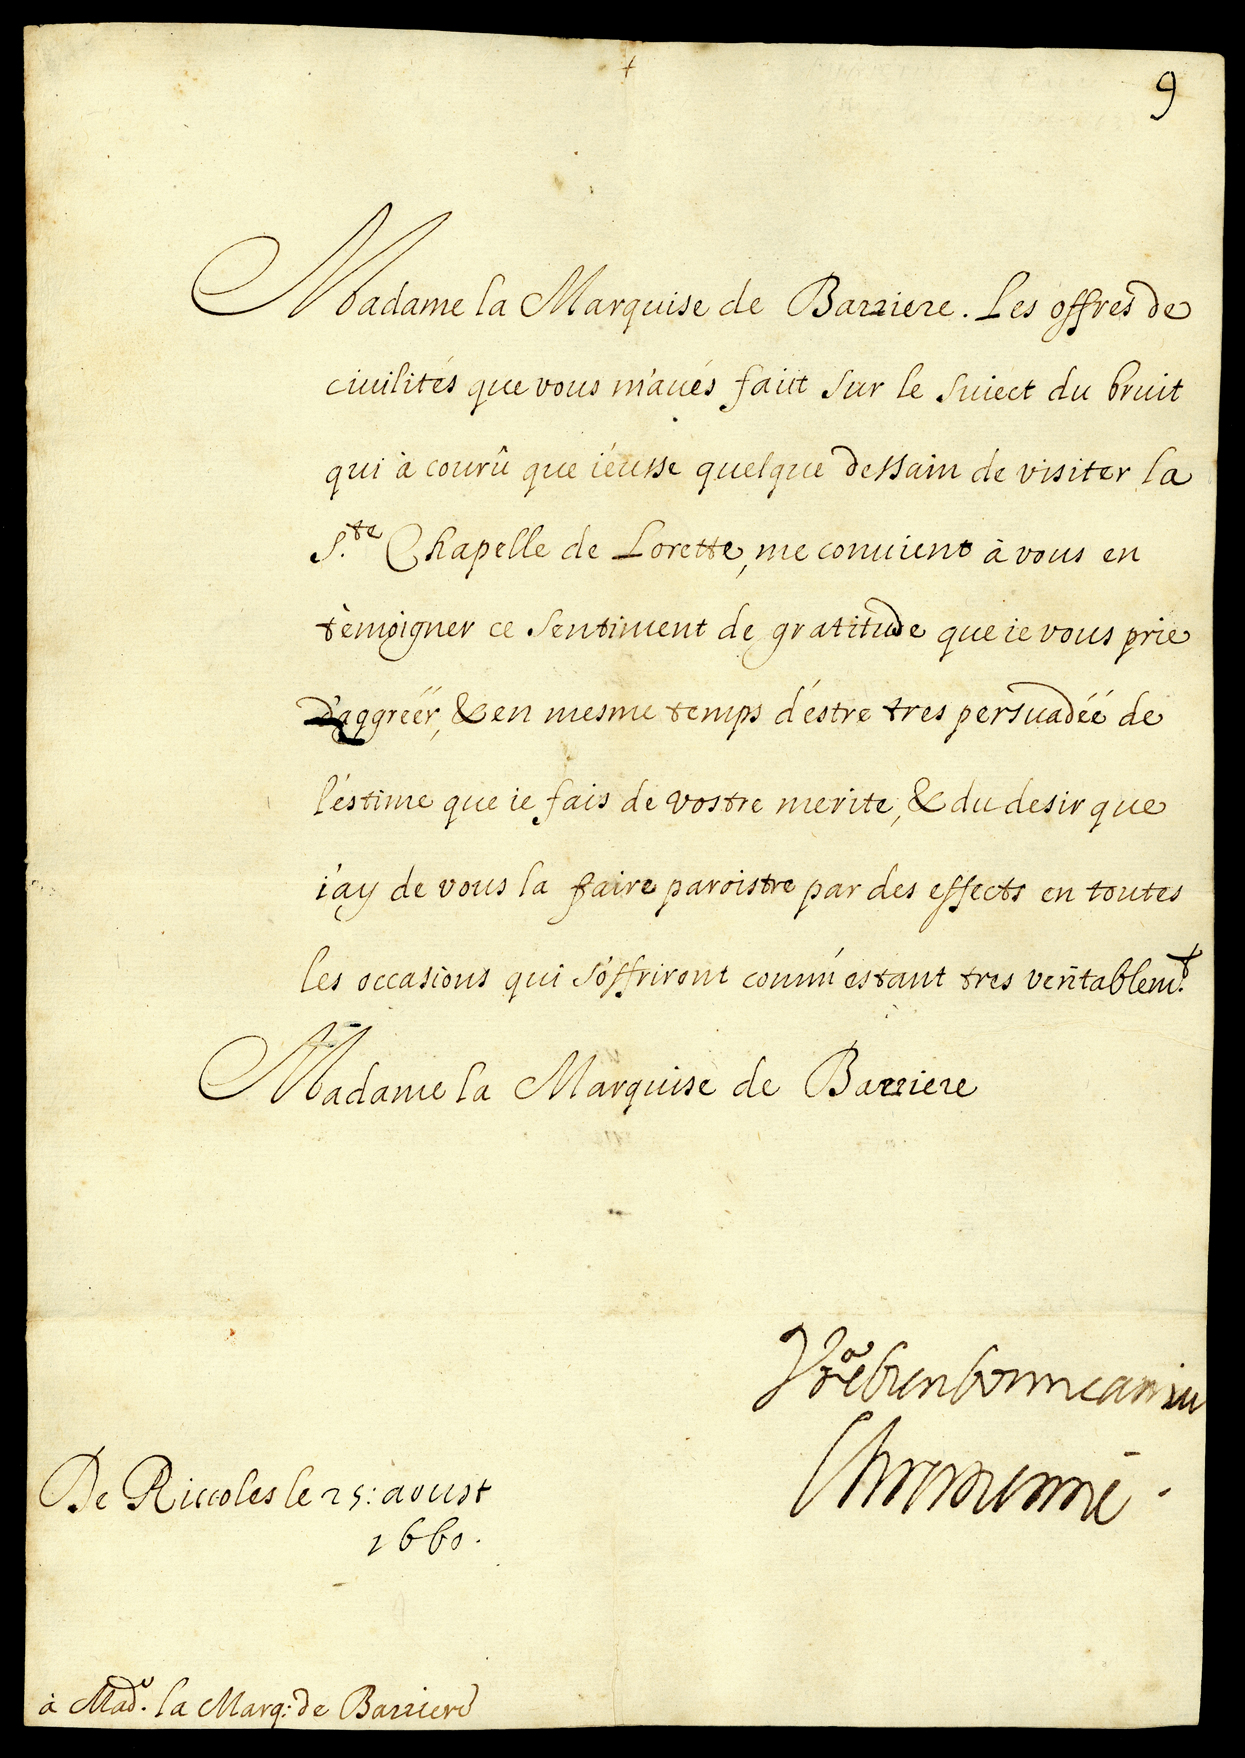 9
Madame la Marquise de Barriere. Les offres de
ciuilités que vous m'aués faict sur le suiect du bruit
qui à courû que i'eusse quelque dessain de visiter la
S.te Chapelle de Lorette, me conuient à vous en
tèmoigner ce sentiment de gratitude que ie vous prie
d'aggreër, & en mesme temps d'éstre tres persuadéé de
l'éstime que ie fais de vostre merite, & du desir que
i'ay de vous la faire paroistre par des effects en toutes
les occasions qui s'offriront comm' estant tres veritablem.t
Madame la Marquise de Barriere
V.re bien bonne amie
De Riccoles le 25: avoust
1660.
à Mad.e la Marq: de Barriere